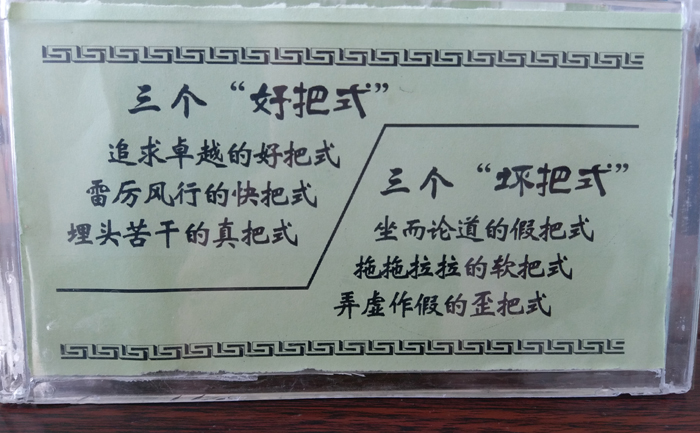 三个“好把式”
追求卓越的好把式
雷厉风行的快把式
埋头苦干的真把式
三个“坏把式”
坐而论道的假把式
拖拖拉拉的软把式
弄虚作假的歪把式